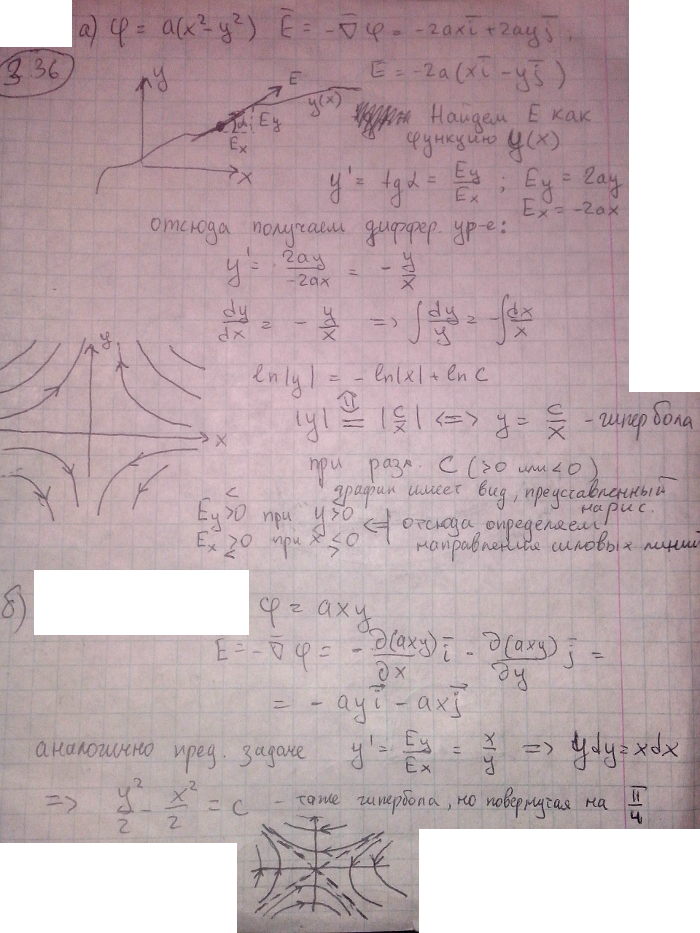 а) φ = a(x² - y²) E̅ = -∇̅φ = -2axi̅ + 2ayj̅,
3.36
E̅ = -2a(xi̅ - yj̅)
y E y(x)
α Ey
Ex
x
Найдем E как
функцию y(x)
y' = tgα = Ey/Ex ; Ey = 2ay
Ex = -2ax
отсюда получаем диффер. ур-е:
y' = 2ay/-2ax = - y/x
dy/dx = - y/x => ∫ dy/y = -∫ dx/x
y
x
ln|y| = - ln|x| + ln C
⇓
|y| = |c/x| <=> y = c/x - гипербола
при разл. C (>0 или <0)
график имеет вид, представленный
на рис.
Ey >< 0 при y >< 0 <= отсюда определяем
Ex >< 0 при x <> 0 направления силовых линий
б) φ = axy
E = -∇̅φ = - ∂(axy)/∂x i̅ - ∂(axy)/∂y j̅ =
= - ayi⃗ - axj⃗
аналогично пред. задаче y' = Ey/Ex = x/y => ydy = xdx
=> y²/2 - x²/2 = C - таже гипербола, но повернутая на π/4